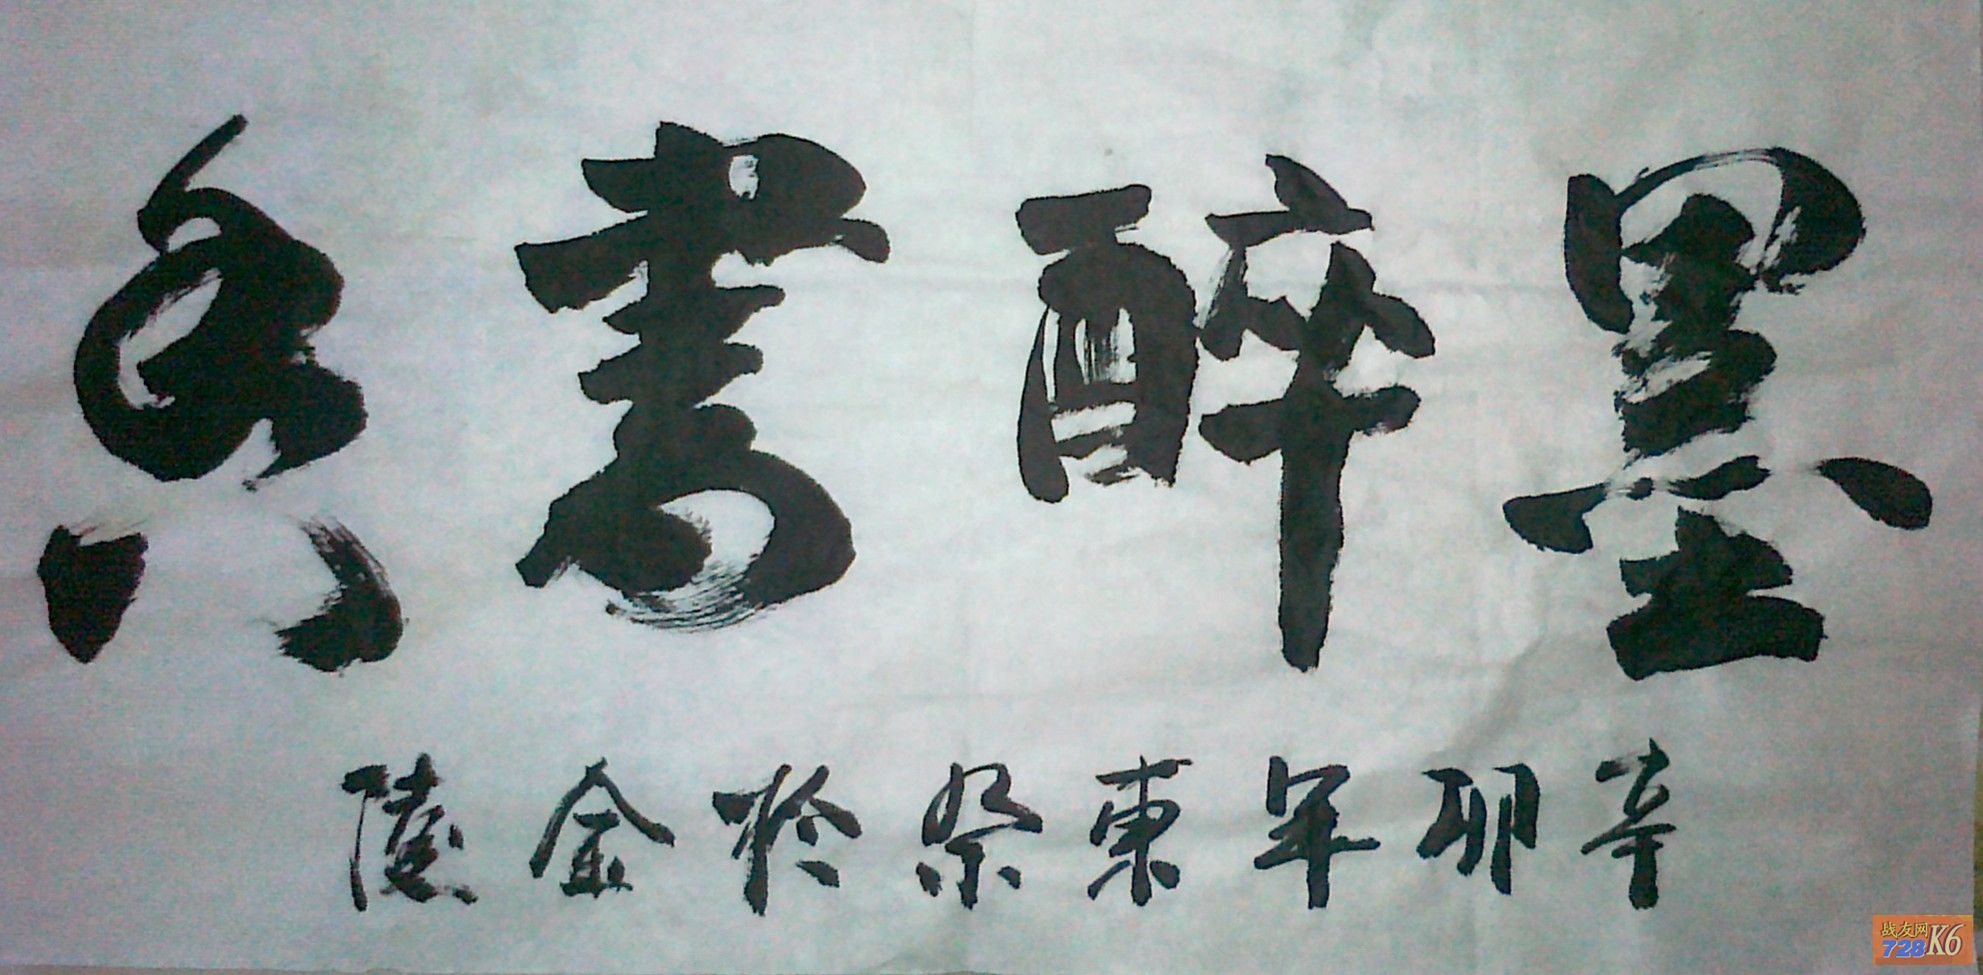 墨醉書香
辛卯年東祭於金陵
战友网
728K6